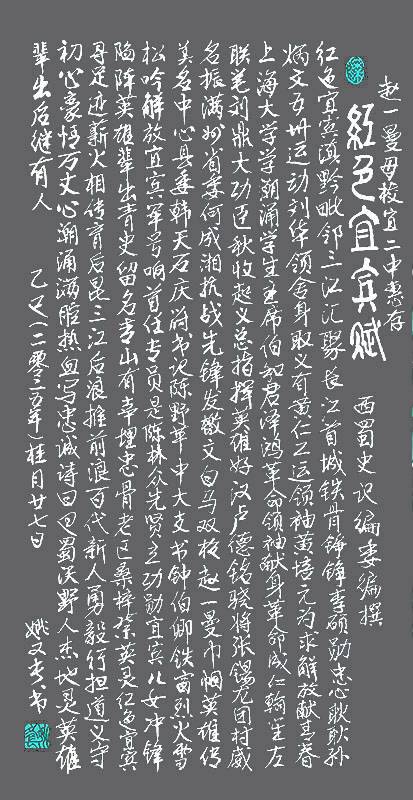 赵一曼母校宜二中惠存
红色宜宾赋
西蜀史记编委编撰
红色宜宾滇黔毗邻三江汇聚长江首城铁骨铮锋李硕勋忠心耿耿孙
炳文五卅运动刘华领舍身取义有黄仁工运领袖黄培元为求解放献青春
上海大学学潮涌学生主席伯知君泽鸿革命领袖献身革命成仁翰笙左
联笔刘鼎大功臣秋收起义总指挥英雄好汉卢德铭骁将张锡龙团村威
名振满州省委何成湘抗战先锋发檄文白马双枪赵一曼巾帼英雄传
美名中心县垂韩天石庆府书记陈野苹中大支书钟伯卿铁窗烈火雪
松吟解放宜宾军号响首任专员是陈林众先贤立功勋宜宾儿女冲锋
陷阵英雄辈出青史留名青山有幸埋忠骨老区桑梓祭英灵红色宜宾
寻足迹薪火相传育后昆三江后浪推前浪百代新人勇毅行担道义守
初心豪情万丈心潮涌满腔热血写忠诚诗曰曰蜀汉野人杰地灵英雄
辈出后继有人
乙巳(二零二五年)桂月廿七日
姚又春书